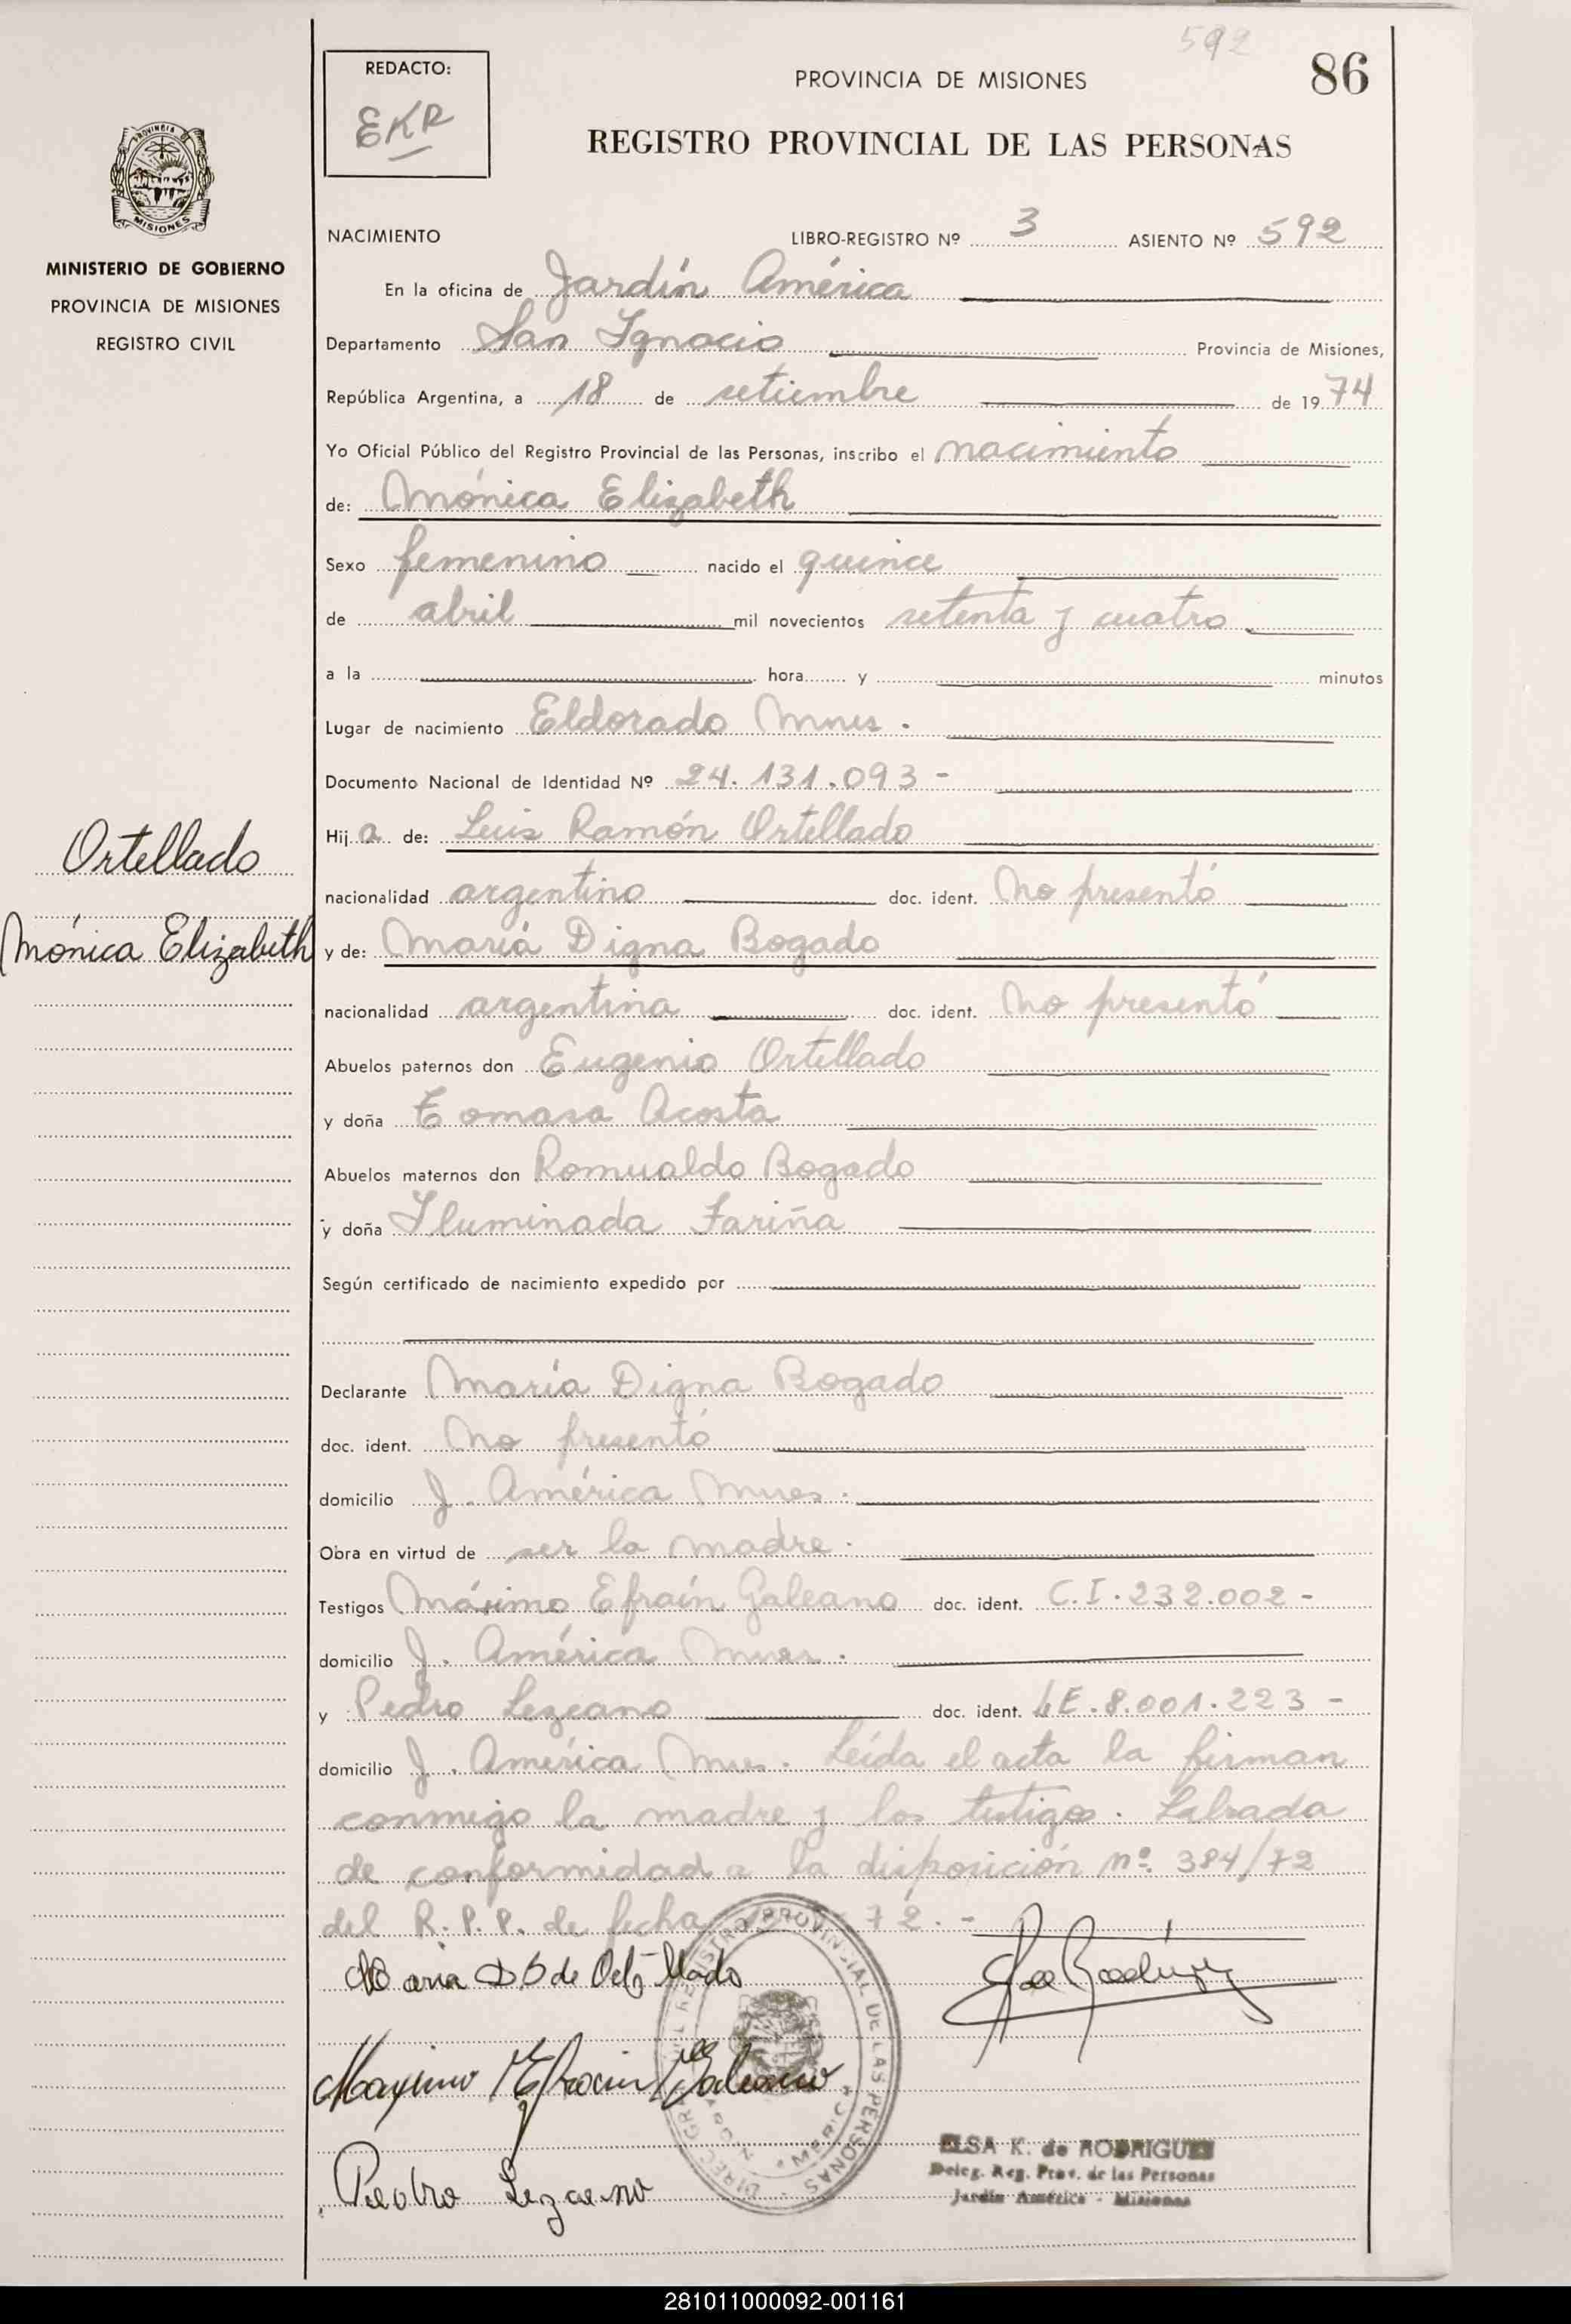 592
86
REDACTO:
EKR
PROVINCIA DE MISIONES
REGISTRO PROVINCIAL DE LAS PERSONAS
PROVINCIA DE
MISIONES
MINISTERIO DE GOBIERNO
PROVINCIA DE MISIONES
REGISTRO CIVIL
NACIMIENTO LIBRO-REGISTRO Nº 3 ASIENTO Nº 592
En la oficina de Jardín América
Departamento San Ignacio Provincia de Misiones,
República Argentina, a 18 de setiembre de 1974
Yo Oficial Público del Registro Provincial de las Personas, inscribo el nacimiento
de: Mónica Elizabeth
Sexo femenino nacido el quince
de abril mil novecientos setenta y cuatro
a la hora y minutos
Lugar de nacimiento Eldorado Mnes.
Documento Nacional de Identidad Nº 24.131.093 -
Ortellado
Mónica Elizabeth
Hija de: Luis Ramón Ortellado
nacionalidad argentino doc. ident. No presentó
y de: María Digna Bogado
nacionalidad argentina doc. ident. No presentó
Abuelos paternos don Eugenio Ortellado
y doña Tomasa Acosta
Abuelos maternos don Romualdo Bogado
y doña Iluminada Fariña
Según certificado de nacimiento expedido por
Declarante María Digna Bogado
doc. ident. No presentó
domicilio J. América Mnes.
Obra en virtud de ser la madre.
Testigos Máximo Efraín Galeano doc. ident. C.I. 232.002 -
domicilio J. América Mnes.
y Pedro Lezcano doc. ident. LE. 8.001.223 -
domicilio J. América Mnes. Leída el acta la firman
conmigo la madre y los testigos. Labrada
de conformidad a la disposición nº. 384/72
del R.P.P. de fecha 72. -
Maria D B de Ortellado
Maximo Efrain Galeano
Pedro Lezcano
REGISTRO PROVINCIAL DE LAS PERSONAS
ELSA K. de RODRIGUEZ
Deleg. Reg. Prov. de las Personas
Jardín América - Misiones
281011000092-001161